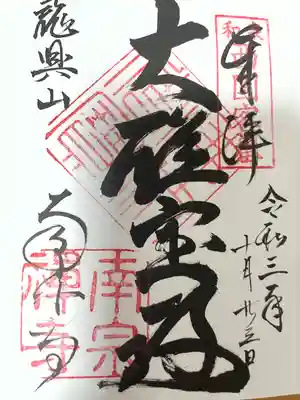 奉拝
令和三年
十月廿三日
大雄宝殿
龍興山
南宗寺
南宗
禪寺